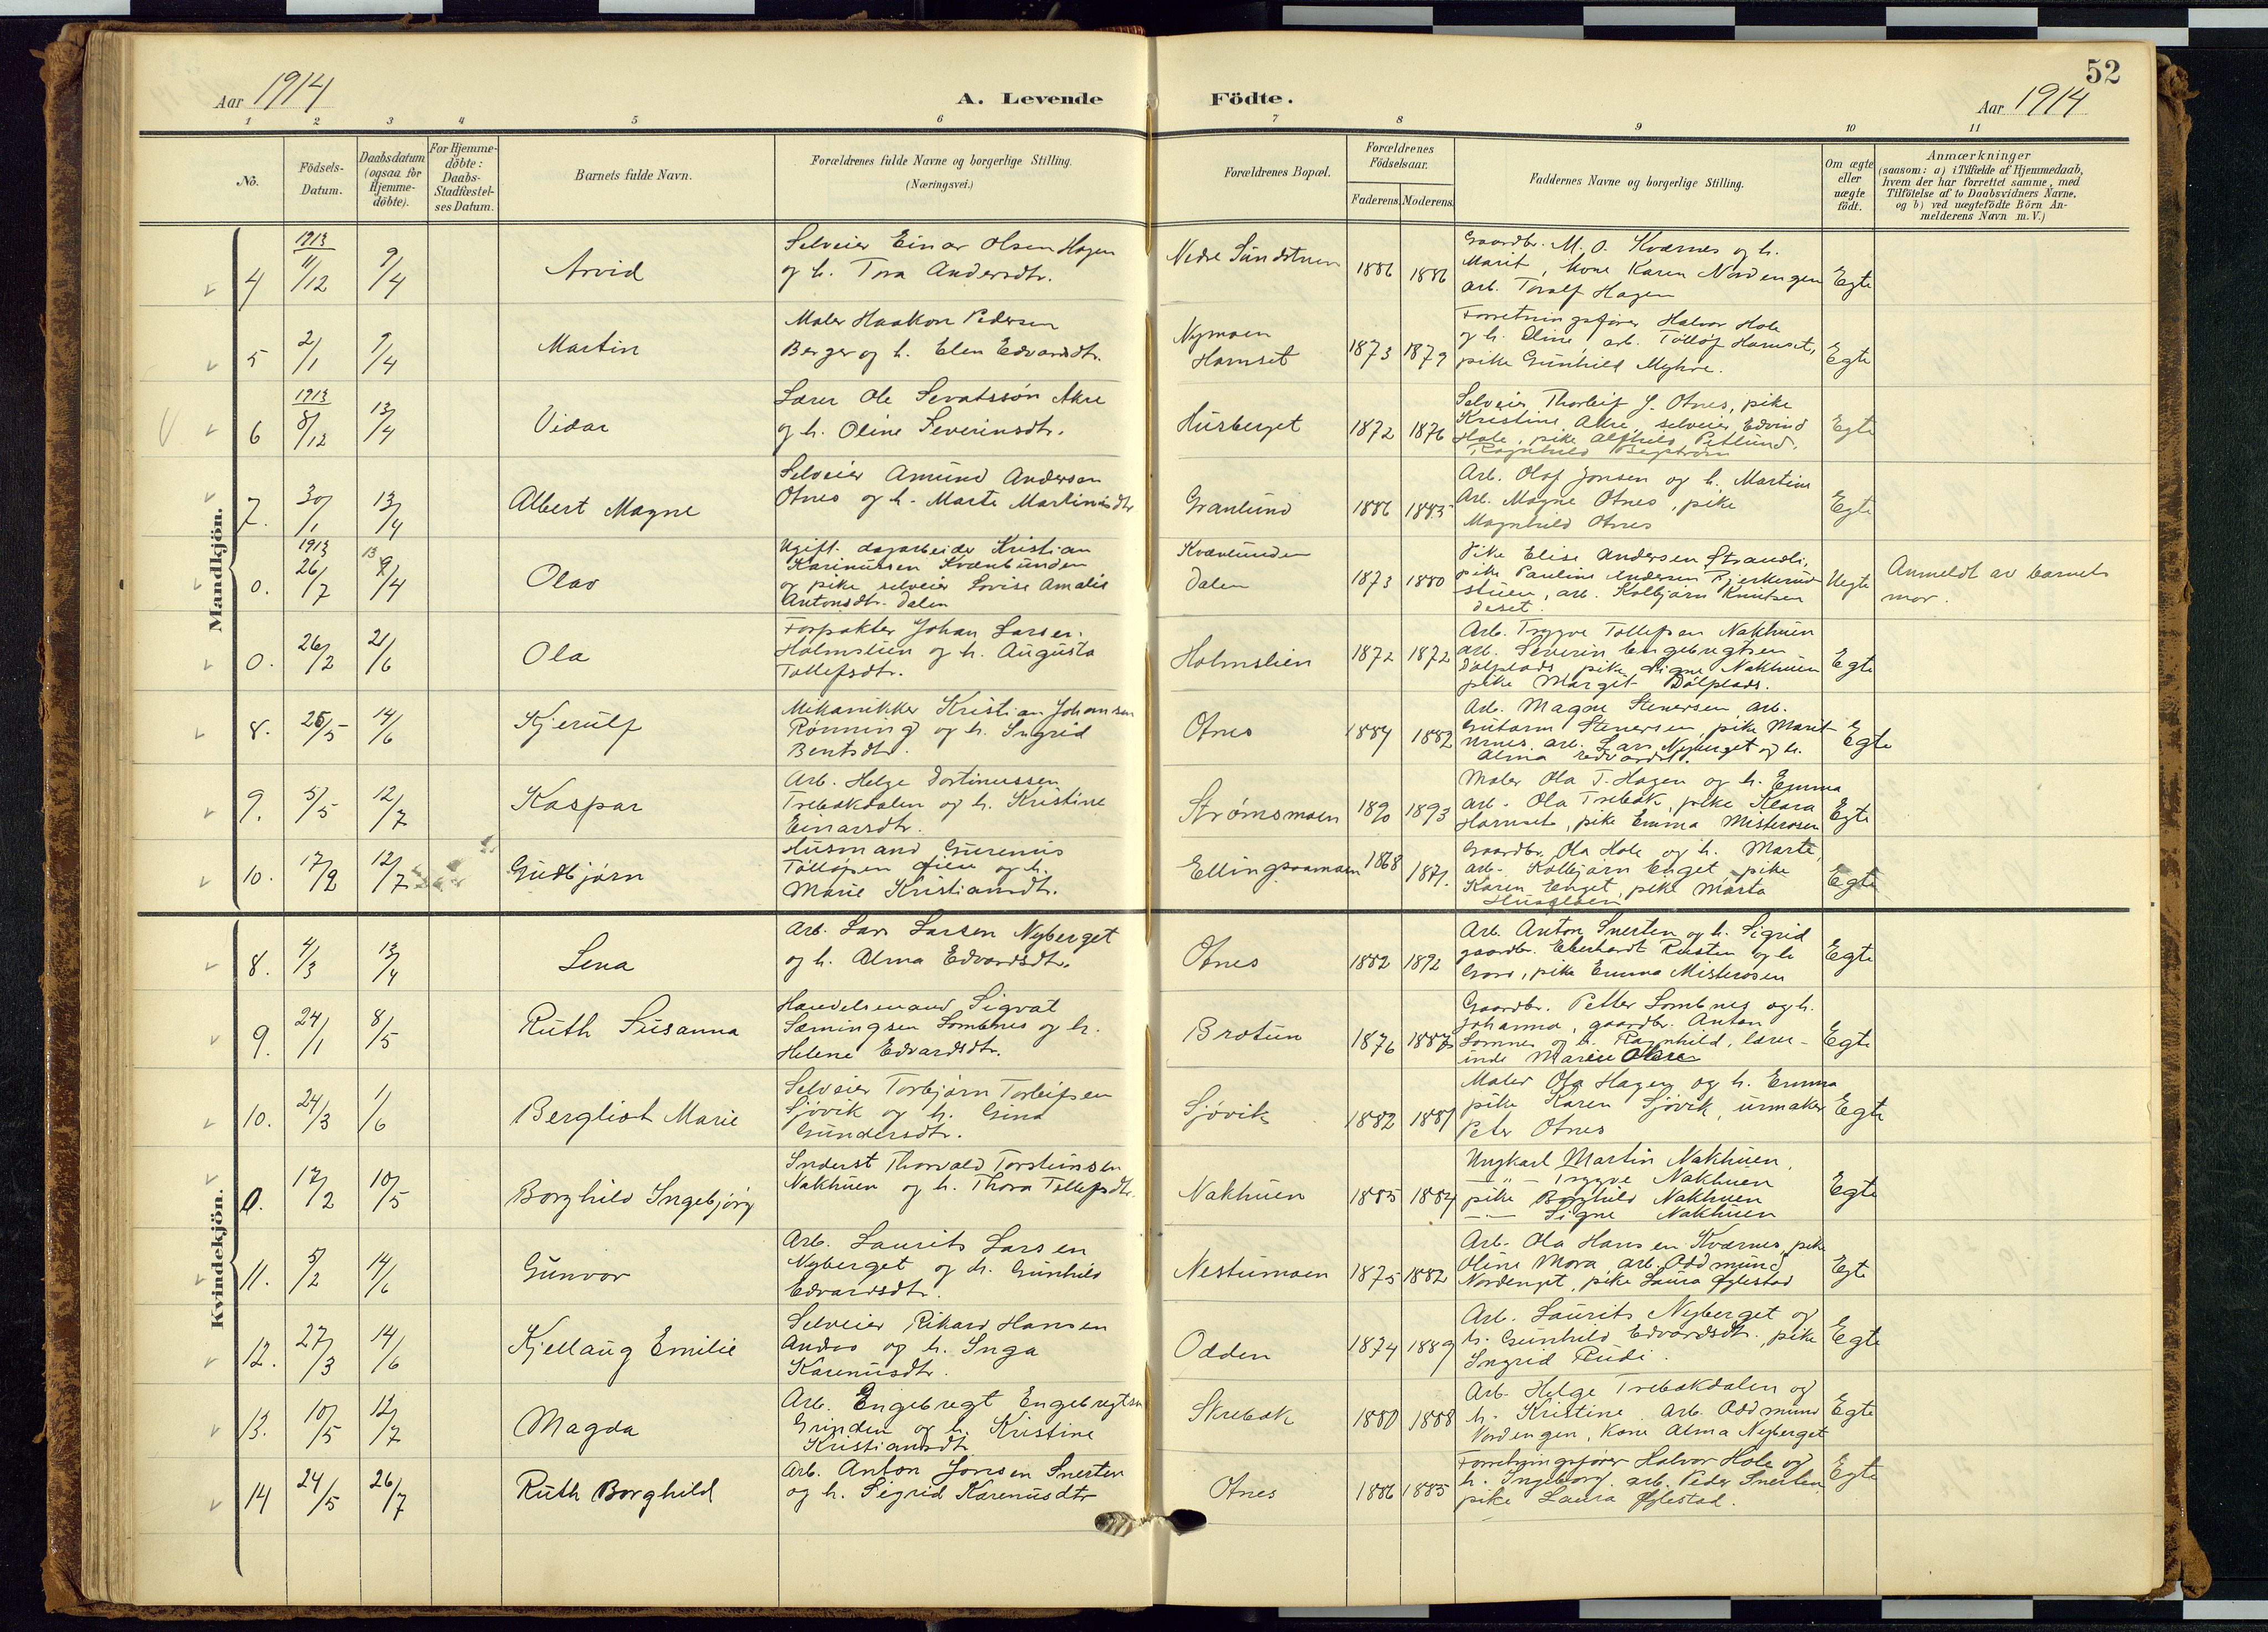 52
Aar 1914
A. Levende Födte.
Aar 1914
1 2 3 4 5 6 7 8 9 10 11
No.
Födsels-Datum.
Daabsdatum (ogsaa for Hjemme-döbte).
For Hjemme-döbte: Daabs-Stadfæstel-ses Datum.
Barnets fulde Navn.
Forældrenes fulde Navne og borgerlige Stilling.
(Næringsvei.)
Forældrenes Bopæl.
Forældrenes Födselsaar.
Faderens. Moderens.
Faddernes Navne og borgerlige Stilling.
Om ægte eller uægte födt.
Anmærkninger
(saasom: a) i Tilfælde af Hjemmedaab,
hvem der har forrettet samme, med
Tilföielse af to Daabsvidners Navne,
og b) ved uægtefödte Börn An-
melderens Navn m. V.)
Mandkjön.
4 1913 11/12 9/4 Arvid
Selveier Einar Olsen Hagen
og h. Tora Andersdtr.
Nedre Sundstuen 1886 1886
Gaardbr. M. O. Kværnes og h.
Marit, kone Karen Nordengen
arb. Toralf Hagen
Egte
5 2/1 9/4 Martin
Maler Haakon Pedersen
Berger og h. Elen Edvardsdtr.
Nymoen
Hornset
1873 1879
Forretningsfører Halvor Hole
og h. Oline, arb. Tölløf Hornset,
pike Gunhild Myhre.
Egte
6 1913 8/12 13/4 Vidar
Lærer Ole Sevatssön Akre
og h. Oline Severinsdtr.
Husberget 1872 1876
Selveier Thorleif J. Otnes, pike
Kristine Akre, selveier Edvind
Hole, pike Alfhild Petlund,
Ragnhild
Egte
7. 30/1 13/4 Albert Magne
Selveier Amund Andersen
Otnes og h. Marte Martinusdtr
Granlund 1886 1885
Arb. Olof Jonsen og h. Martine
Arb. Magne Otnes, pike
Magnhild Otnes
Egte
0. 1913 26/7 13 9/4 Olav
Ugift dagarbeider Kristian
Karinussen Kvænbunden
og pike selveier Lovise Amalie
Antonsdtr. Dalen
Dalen
1873 1880
Pike Elise Andersen Strandli,
pike Pauline Andersen Bjerkerud
stuen, arb. Kolbjørn Knutsen
deset.
Uegte
Anmeldt av barnets
mor.
0. 26/2 21/6 Ola
Forpakter Johan Larsen
Holmslien og h. Augusta
Tollefsdtr.
Holmslien 1872 1872
Arb. Trygve Tollefsen Nakhuen
arb. Severin Engebregtsen
Dölplads, pike Signe Nakhuen
pike Margit Dölplads.
Egte
8. 25/5 14/6 Kjerulf
Mekanikker Kristian Johansen
Rönning og h. Ingrid
Bentsdtr.
Otnes 1884 1882
Arb. Magne Stenersen, arb.
Gutorm Stenersen, pike Marit
Urnes, arb. Lars Nyberget og h.
Alma Edvardsd.
Egte
9. 5/5 12/7 Kaspar
Arb. Helge Dortinussen
Trebakdalen og h. Kristine
Einarsdtr.
Strømsmoen 1890 1893
Maler Ola T. Hagen og h. Emma
arb. Ola Trebak, pike Klara
Hornset, pike Emma Misterosen
Egte
10. 17/2 12/7 Gudbjørn
Husmand Gurenius
Tölløfsen Öien og h.
Marie Kristiansdtr.
Ellingsramoen 1868 1871.
Gaardbr. Ola Hole og h. Marte,
arb. Kolbjørn Enget, pike
Karen Enget, pike Marta
Husfloen
Egte
Kvindekjön.
8. 4/3 13/4 Lena
Arb. Lars Larsen Nyberget
og h. Alma Edvardsdtr.
Otnes 1882 1892
Arb. Anton Snerten og h. Sigrid
gaardbr. Eberhardt Rusten og h.
Goro, pike Emma Misterosen
Egte
9. 24/1 8/5 Ruth Susanna
Handelsmand Sigvat
Sæmingsen Lombnes og h.
Helene Edvardsdtr.
Brotun 1876 1887
Gaardbr. Petter Lombnes og h.
Johanna, gaardbr. Anton
Lomnes og h. Ragnhild, lærer-
inde Marie Akre
Egte
10. 24/3 1/6 Bergliot Marie
Selveier Torbjørn Torleifsen
Sjövik og h. Gina
Gundersdtr.
Sjövik 1882 1887
Maler Ola Hagen og h. Emma
pike Karen Sjövik, urmaker
Peter Otnes
Egte
0. 17/2 10/5 Borghild Ingebjörg
Inderst Thorvald Torstensen
Nakhuen og h. Thora Tollefsdtr.
Nakhuen 1885 1884
Ungkarl Martin Nakhuen,
— " — Trygve Nakhuen
pike Borghild Nakhuen
— " — Signe Nakhuen
Egte
11. 5/2 14/6 Gunvor
Arb. Laurits Larsen
Nyberget og h. Gunhild
Edvardsdtr.
Nestumoen 1875 1882
Arb. Ola Hansen Kværnes, pike
Oline Mora, arb. Oddmund
Nordenget, pike Laura Öglestad
Egte
12. 27/3 14/6 Kjellaug Emilie
Selveier Rikard Hansen
Andaa og h. Inga
Karenusdtr.
Odden 1874 1889
Arb. Laurits Nyberget og
h. Gunhild Edvardsdtr., pike
Ingrid Rudi.
Egte
13. 10/5 12/7 Magda
Arb. Engebregt Engebregtsen
Grinden og h. Kristine
Kristiansdtr
Skrebak 1880 1888
Arb. Helge Trebakdalen og
h. Kristine, Arb. Oddmund
Nordengen, kone Alma Nyberget
Egte
14 24/5 26/7 Ruth Borghild
Arb. Anton Jonsen Snerten
og h. Sigrid Karenusdtr
Otnes 1886 1885
Forretningsfører Halvor Hole og
h. Ingeborg, arb. Peder Snerten
pike Laura Öglestad.
Egte